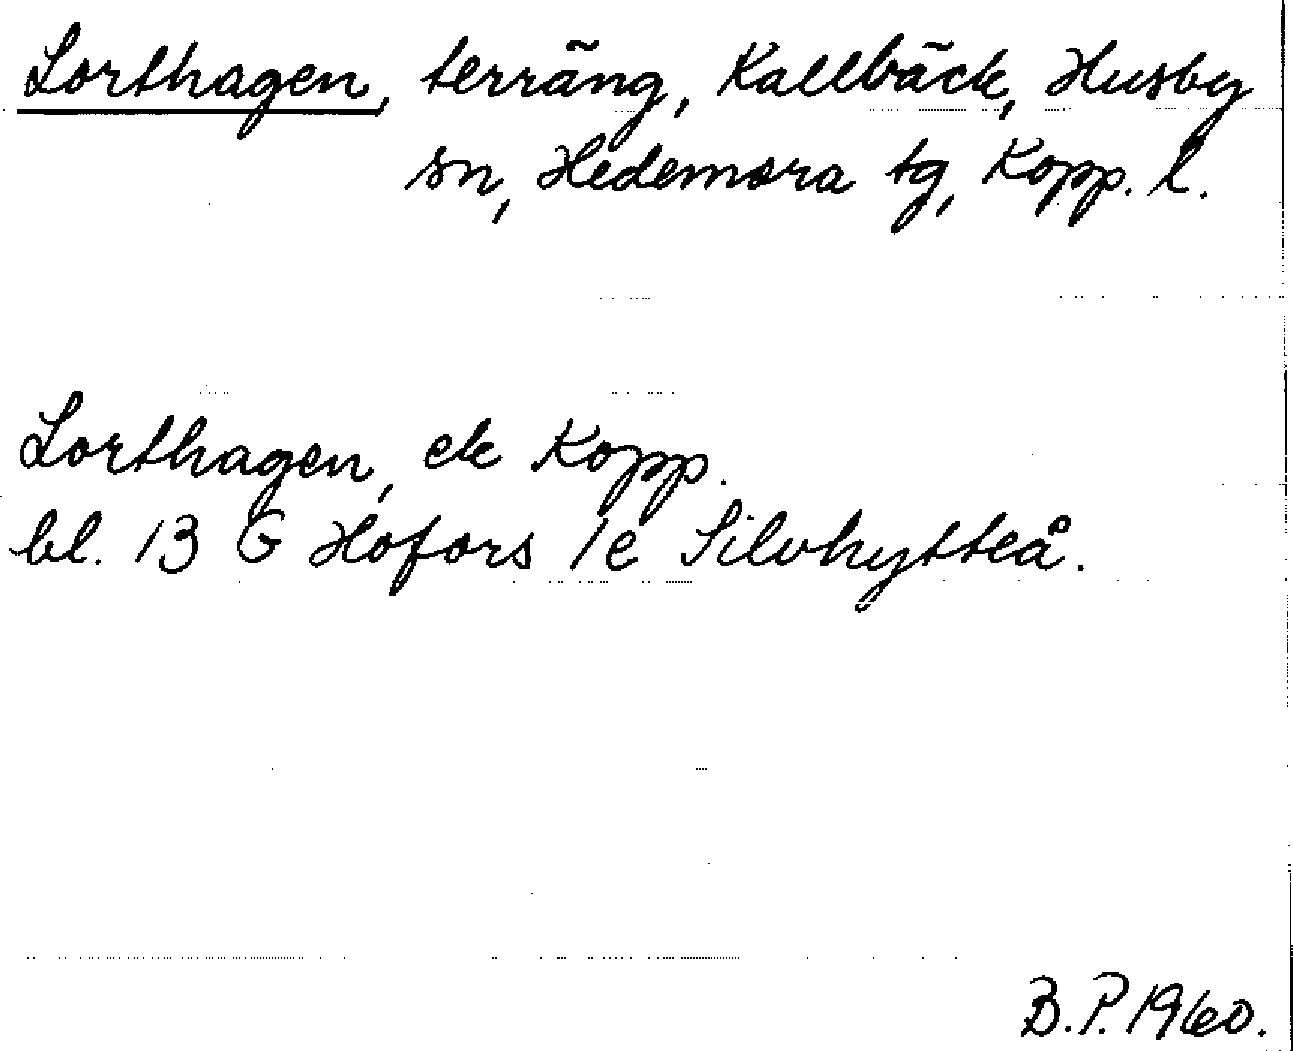 Lorthagen, terräng, Kallbäck, Husby
sn, Hedemora tg, Kopp. l.
Lorthagen, ek Kopp.
bl. 13 G Hofors 1e Silvhytteå.
B.P. 1960.